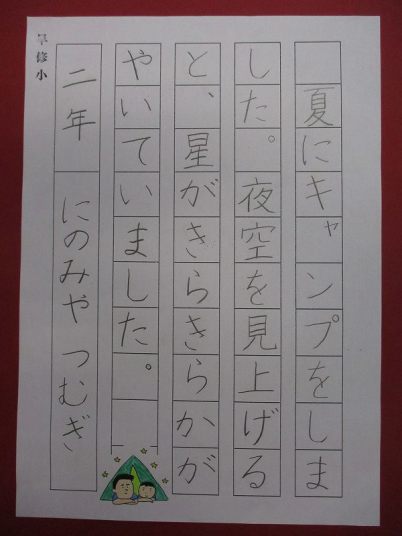 夏にキャンプをしま
した。夜空を見上げる
と、星がきらきらかが
やいていました。
二年 にのみや つむぎ